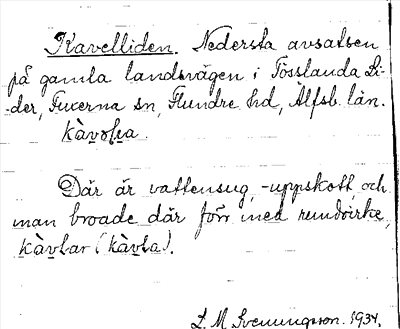 Kavelliden. Nedersta avsatsen
på gamla landsvägen i Tösslanda Li-
der, Fuxerna sn, Flundre hd, Älfsb. län.
kàvǝlɩa.
Där är vattensug, -uppskott, och
man broade där förr med rundvirke,
kàvlar (kàvla).
L. M. Svenungsson. 1934.